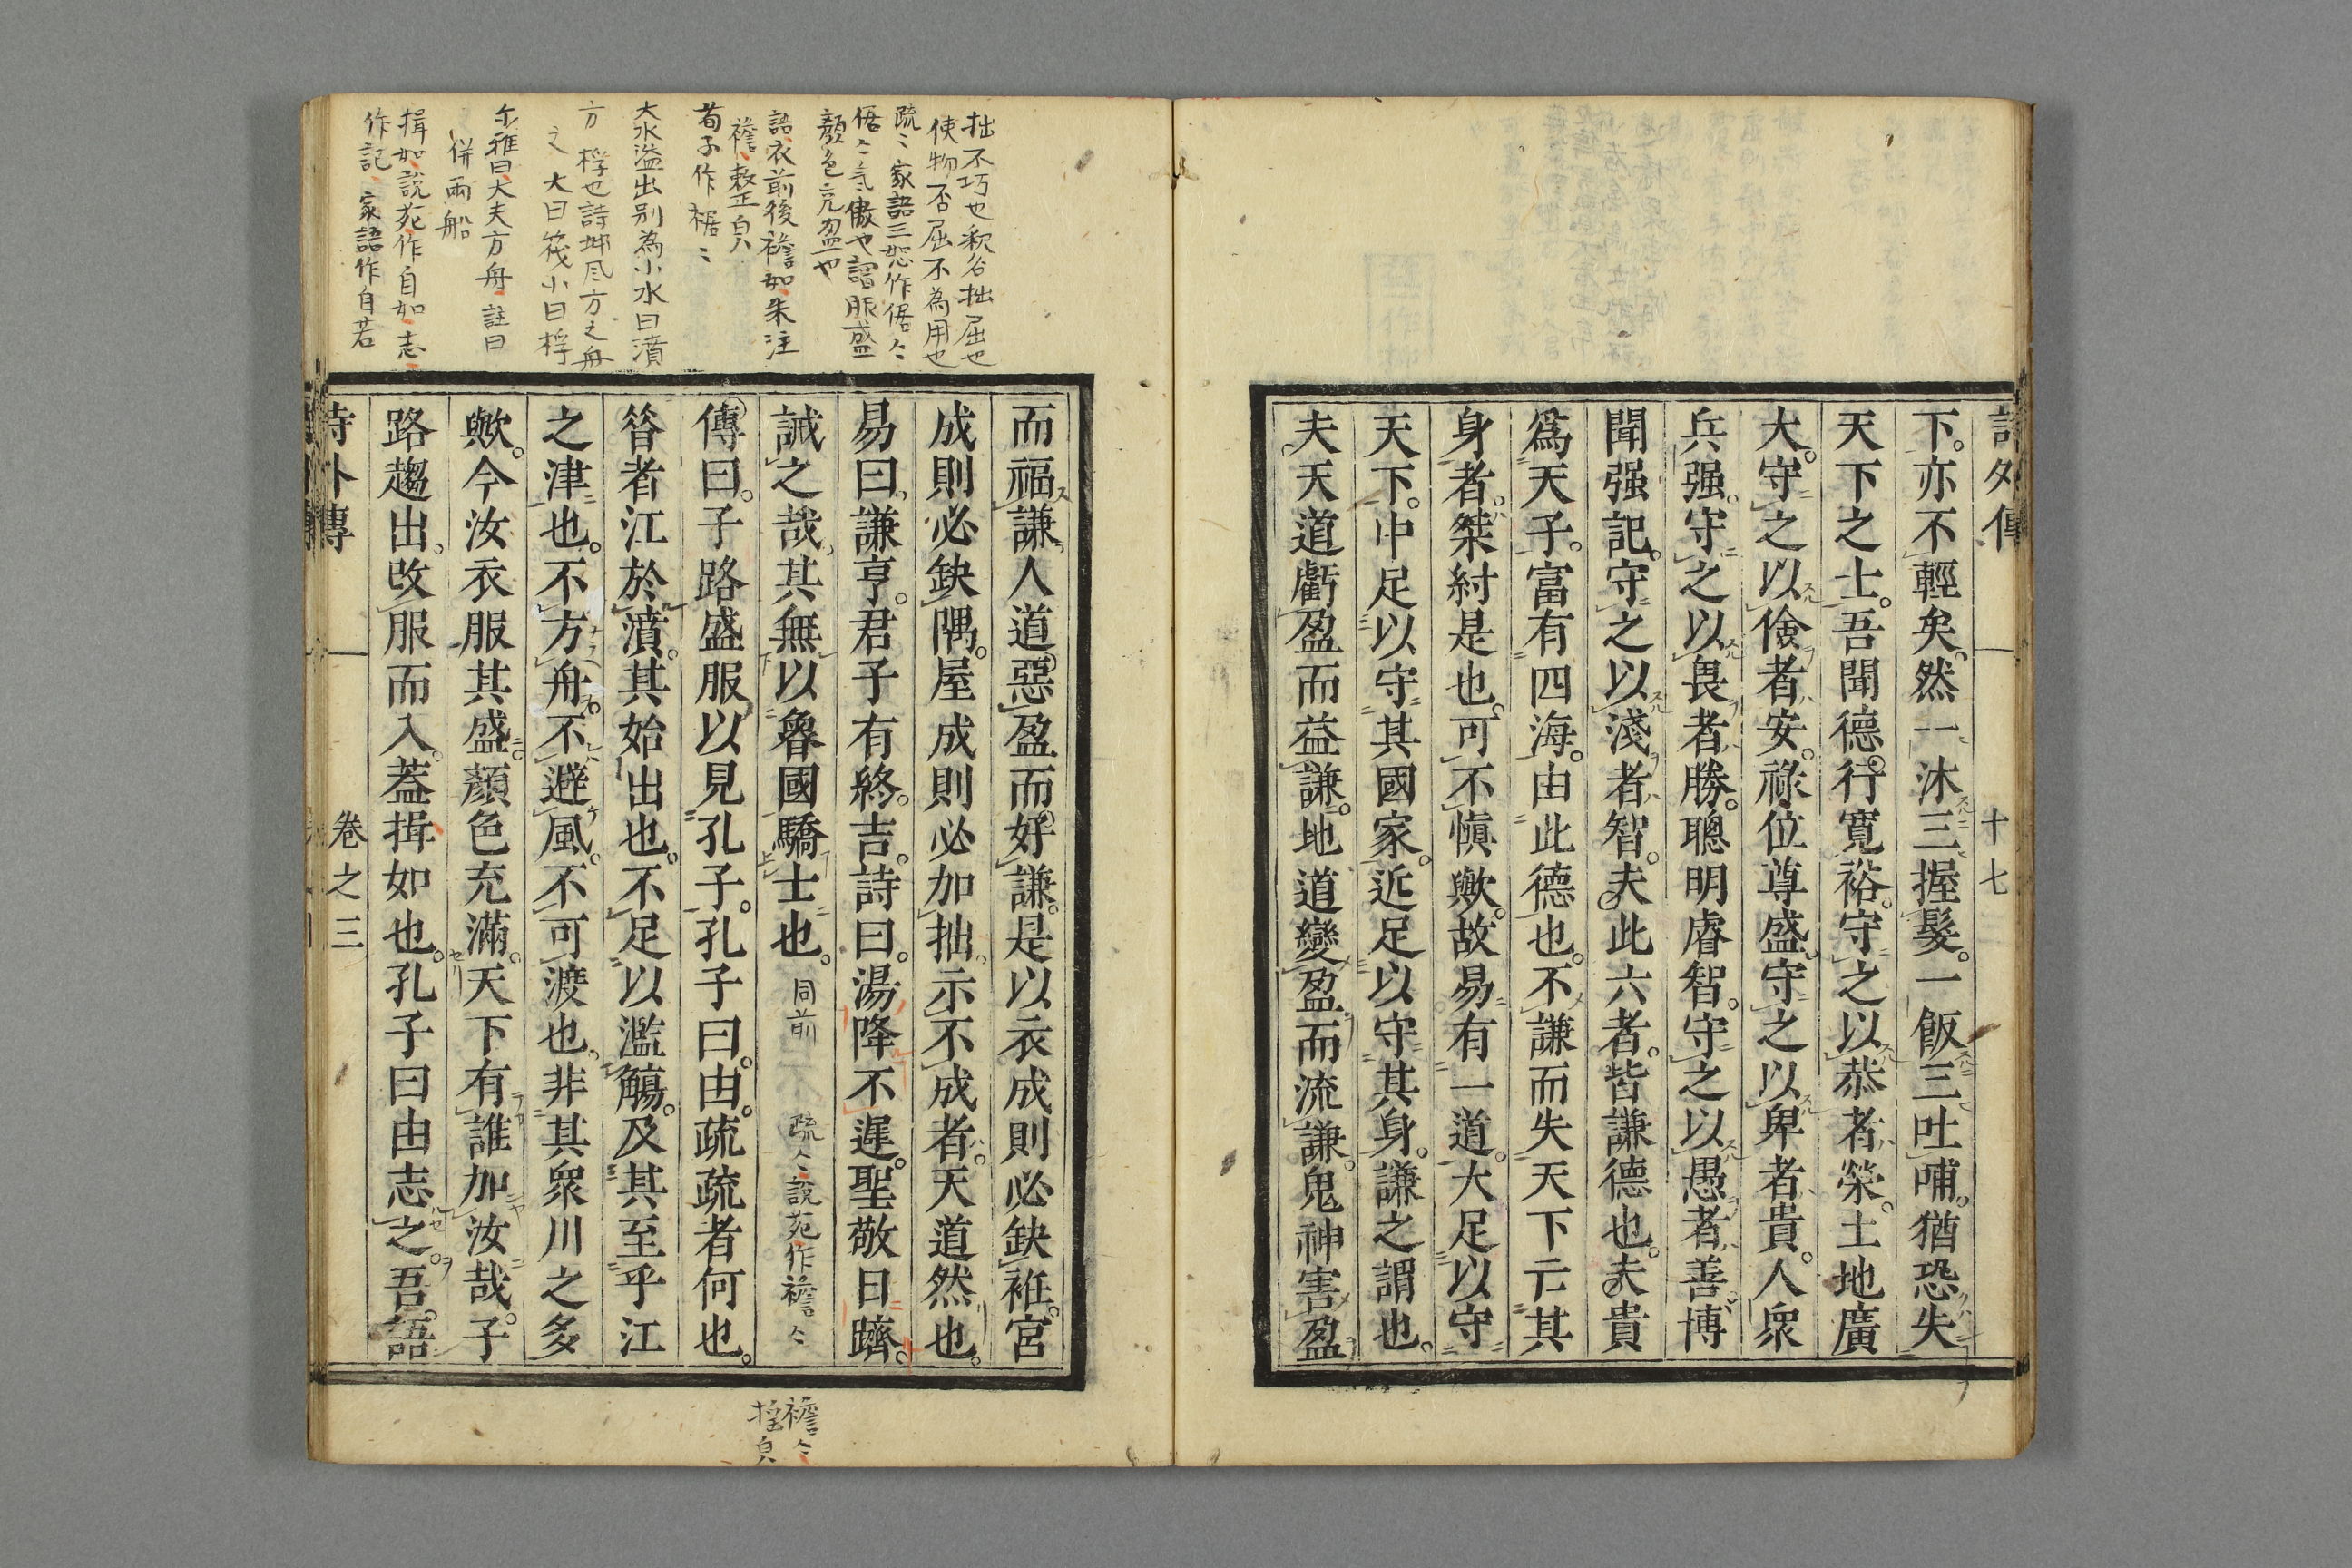 詩外傳
十七
下。亦不輕矣。然一沐三握髮。一飯三吐哺。猶恐失
天下之士。吾聞德行寬裕。守之以恭者榮。土地廣
大。守之以儉者安。祿位尊盛。守之以卑者貴。人衆
兵强。守之以畏者勝。聰明睿智。守之以愚者善。博
聞强記。守之以淺者智。夫此六者。皆謙德也。夫貴
爲天子。富有四海。由此德也。不謙而失天下亡其
身者。桀紂是也。可不愼歟。故易有一道。大足以守
天下。中足以守其國家。近足以守其身。謙之謂也。
夫天道虧盈而益謙。地道變盈而流謙。鬼神害盈
而福謙。人道惡盈而好謙。是以衣成則必缺袵。宮
成則必缺隅。屋成則必加拙。示不成者。天道然也。
易曰。謙亨。君子有終。吉。詩曰。湯降不遲。聖敬日躋。
誡之哉。其無以魯國驕士也。同前 疏々說苑作襜々
傳曰。子路盛服以見孔子。孔子曰。由。疏疏者何也。
昝者江於濆。其始出也。不足以濫觴。及其至乎江
之津也。不方舟。不避風。不可渡也。非其衆川之多
歟。今汝衣服其盛。顏色充滿。天下有誰加汝哉。子
路趨出。改服而入。葢揖如也。孔子曰由志之。吾語
詩外傳
卷之三
拙不巧也釈谷拙屈也
使物否屈不為用也
疏〻家語三恕作倨々
倨々气傲也謂服盛
顏色充盈也
語衣前後襜如朱注
襜整正皃
荀子作裾〻
大水溢出别為小水曰濆
方 桴也詩邶风方之舟
之 大曰筏小曰桴
尔雅曰大夫方舟註曰
併兩船
揖如說苑作自如志
作記 家語作自若
襜々
搖皃